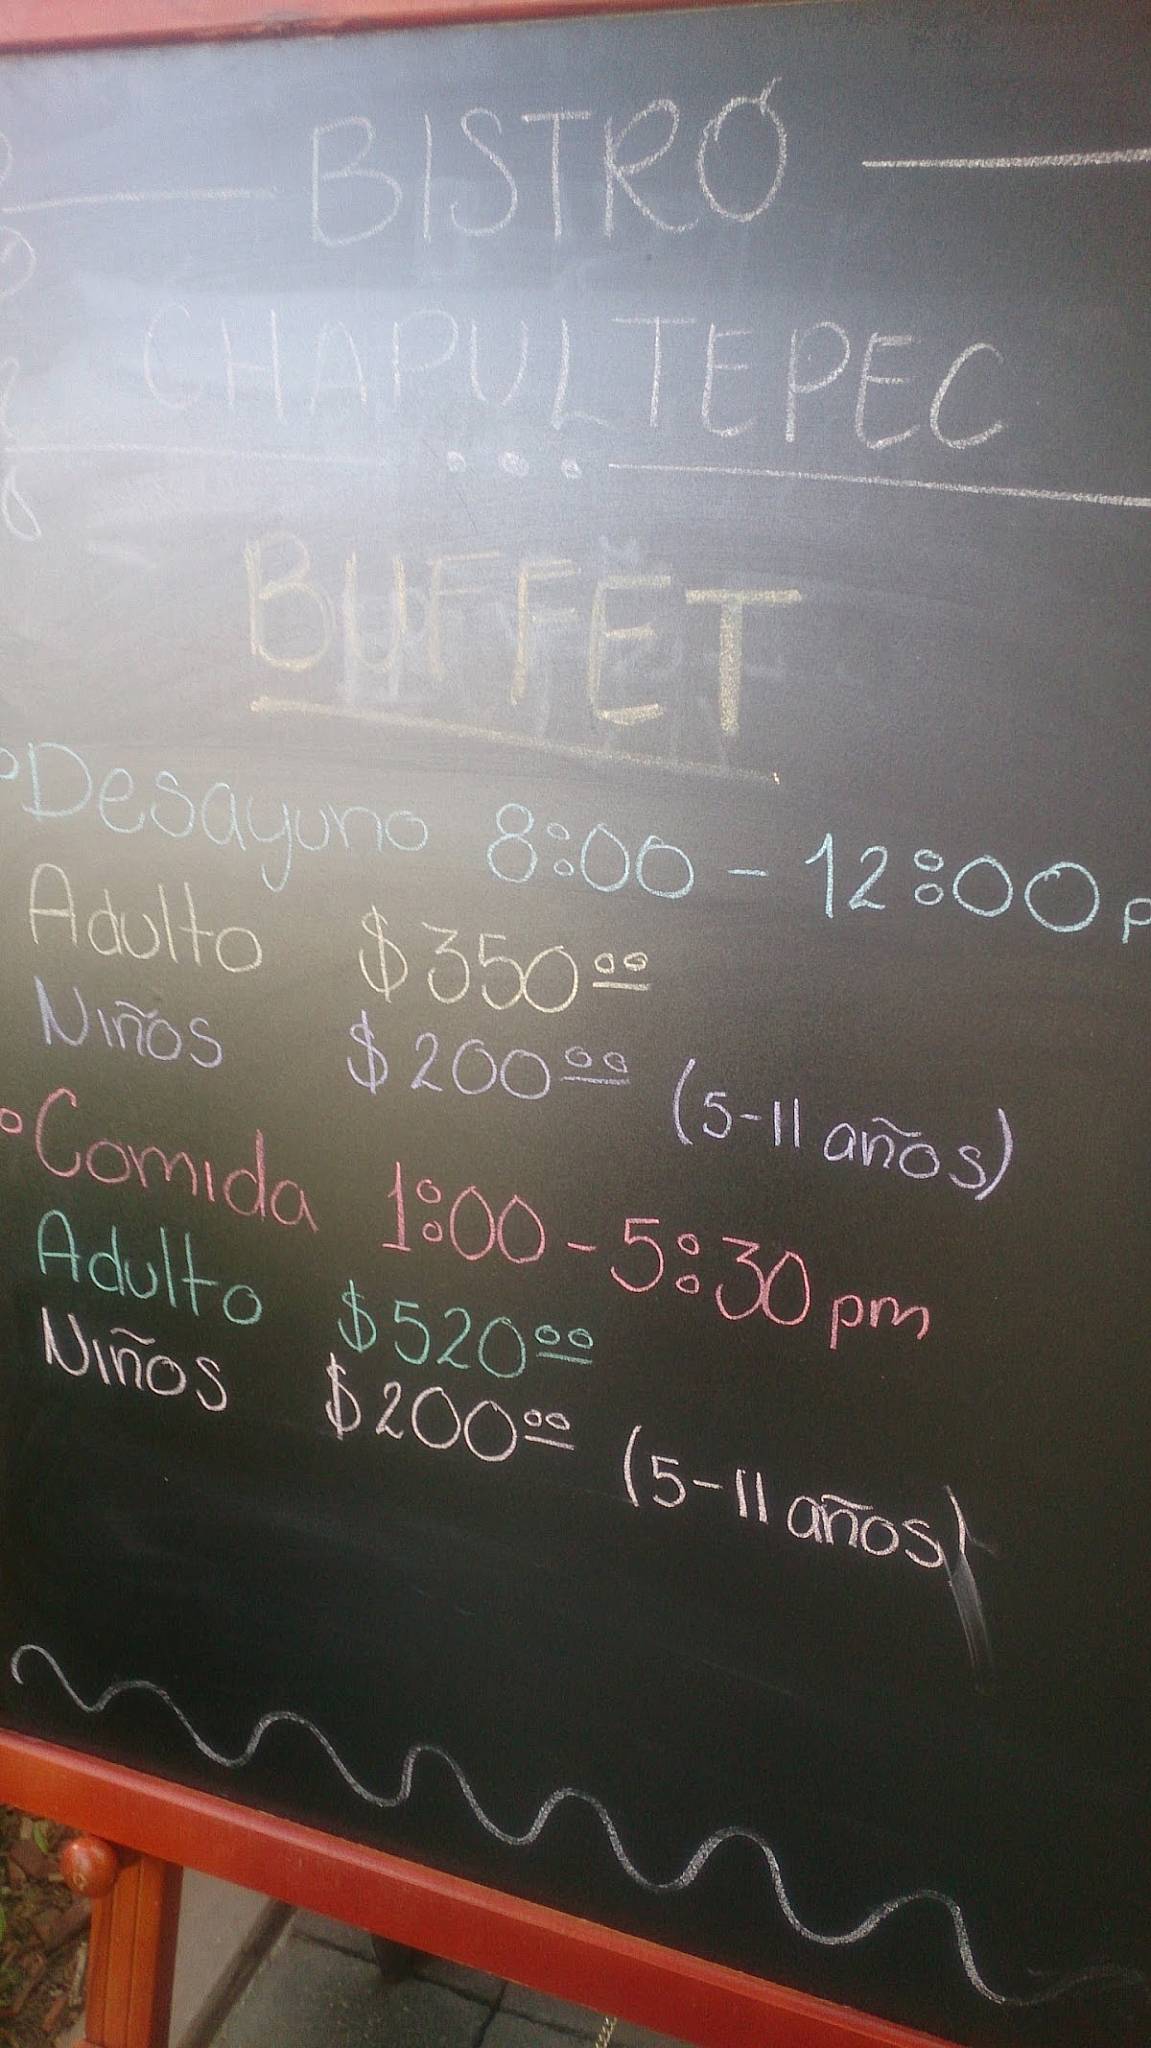 BISTRÓ
CHAPULTEPEC
BUFFET
Desayuno 8:00 - 12:00 p
Adulto $350.00
Niños $200.00 (5-11 años)
Comida 1:00 - 5:30 pm
Adulto $520.00
Niños $200.00 (5-11 años)